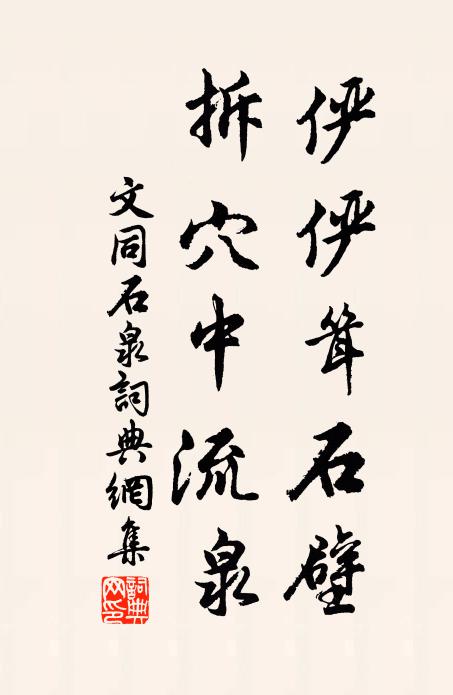 俨俨耸石壁
拆穴中流泉
文同石泉詞典網集
詞典网印